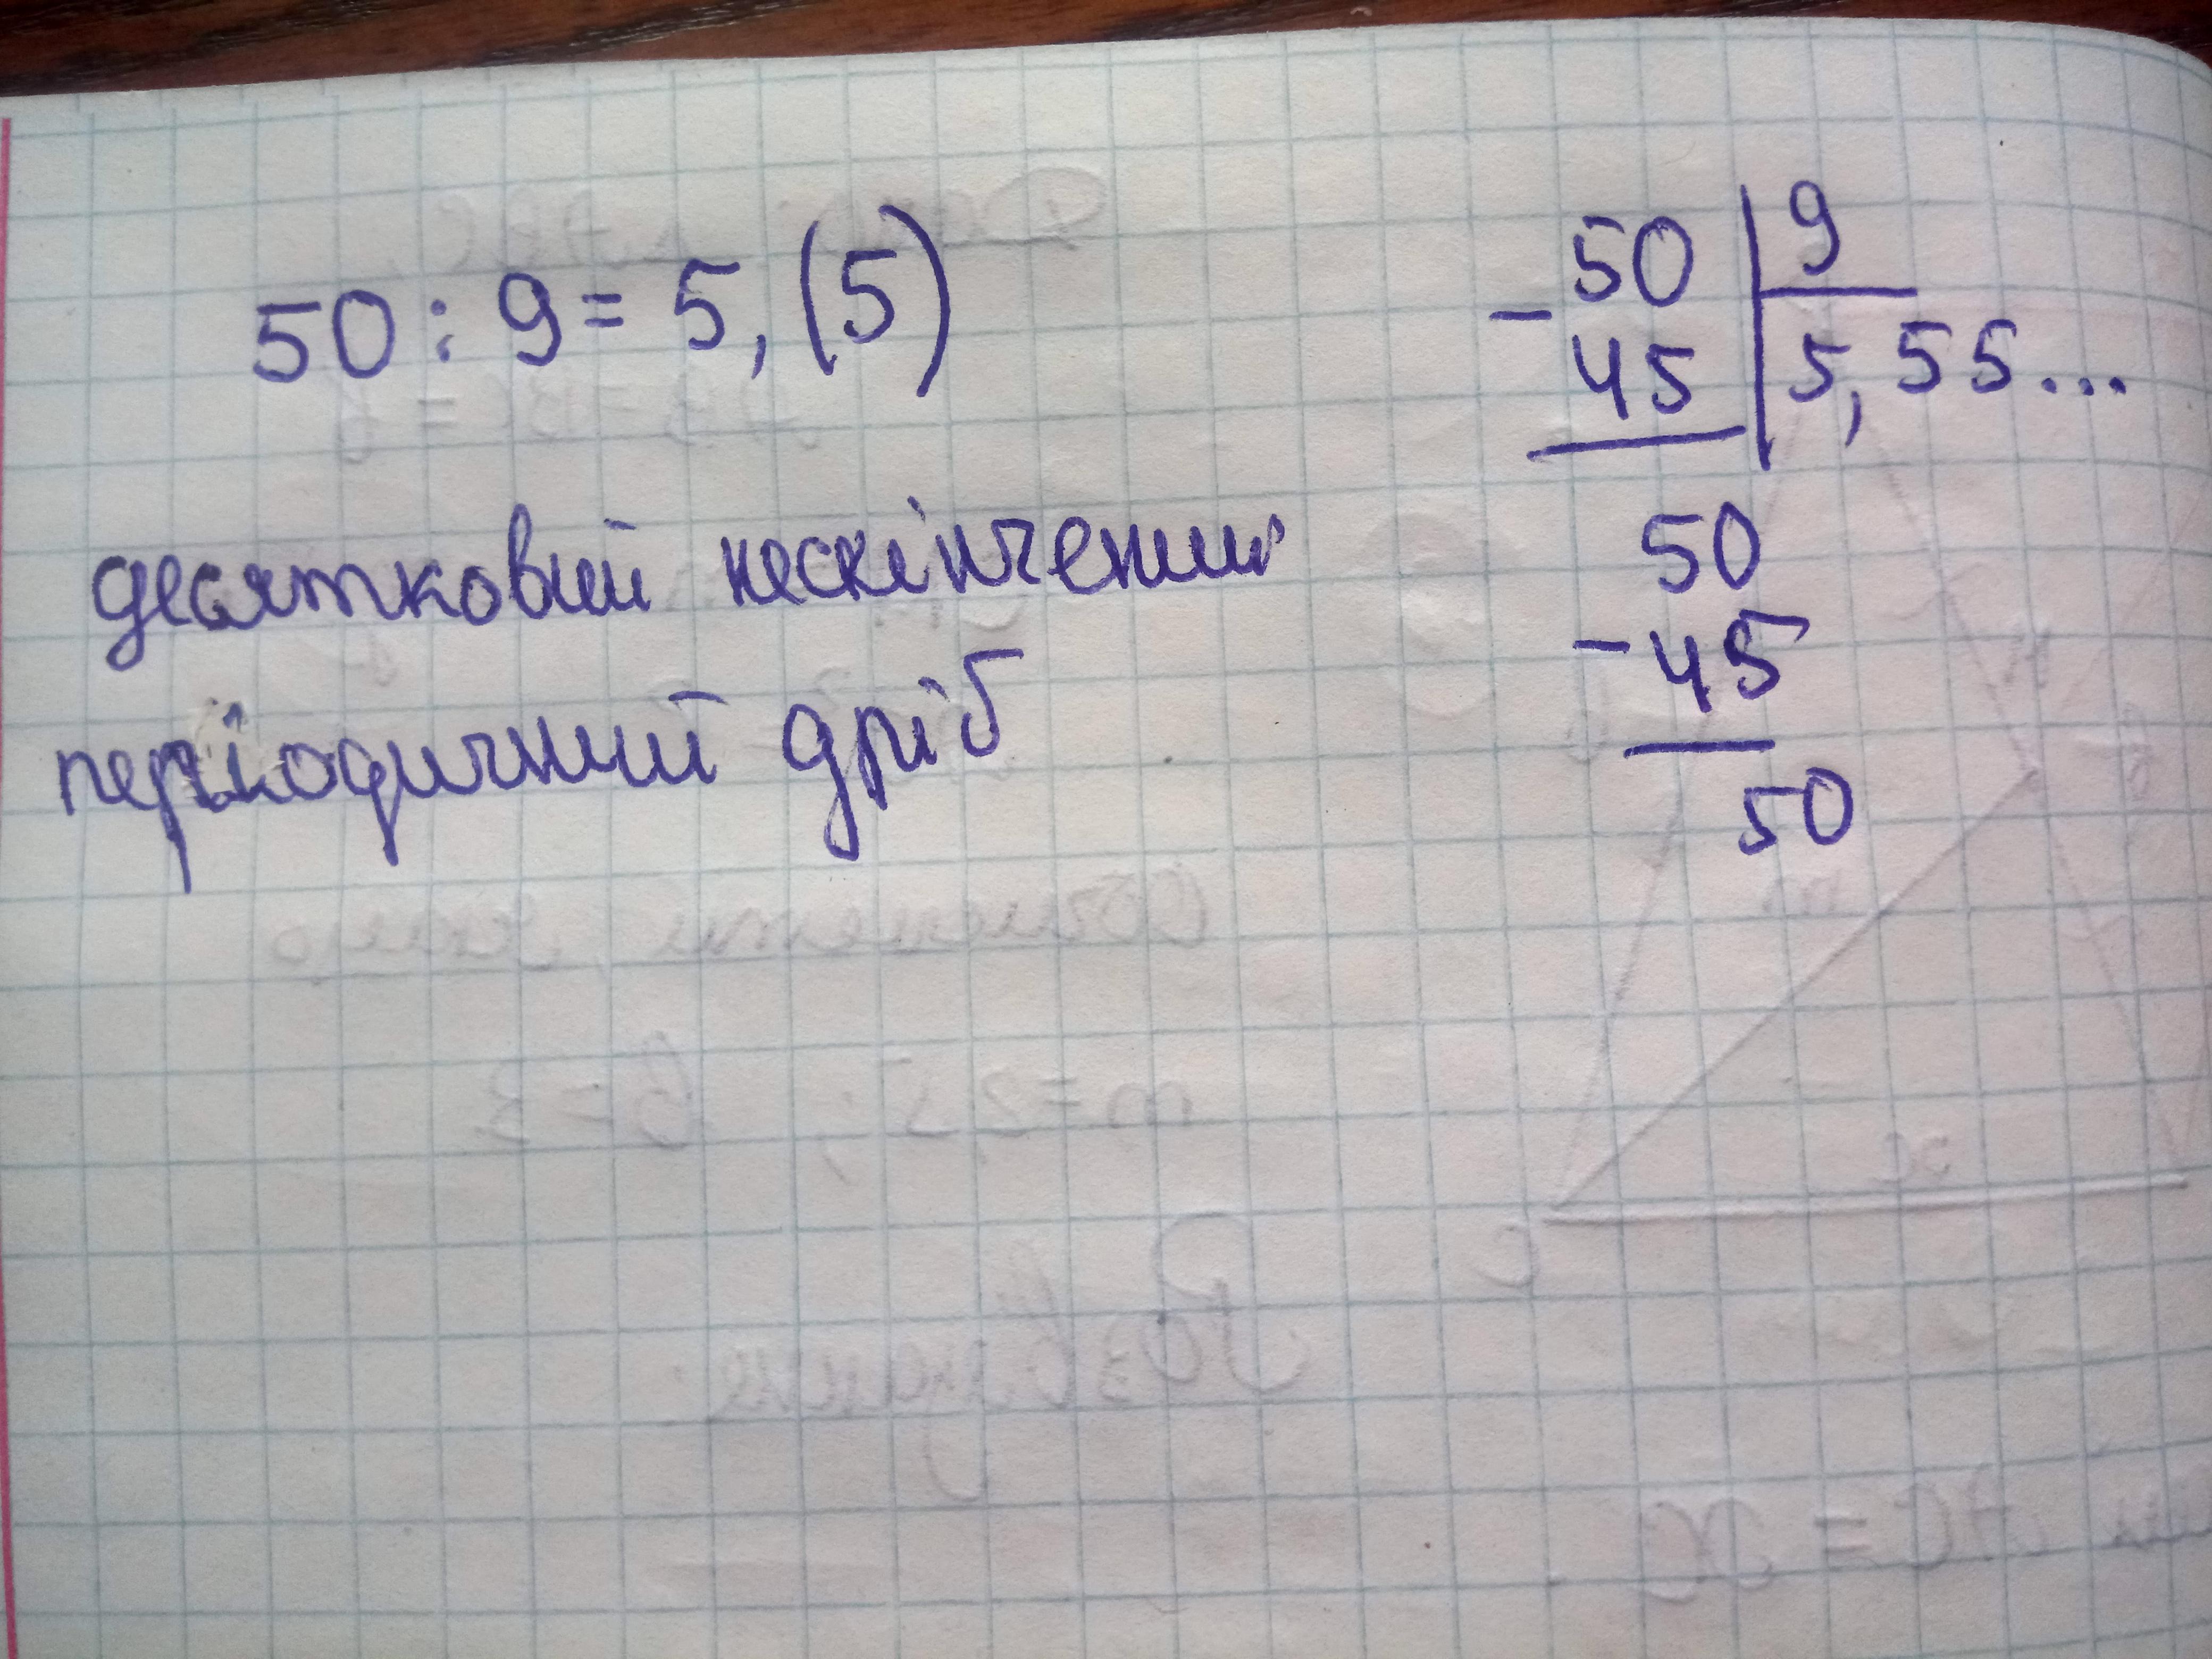 50 : 9 = 5,(5)
десятковий нескінчений
періодичний дріб
50 | 9
- 45 | 5,55...
50
- 45
50